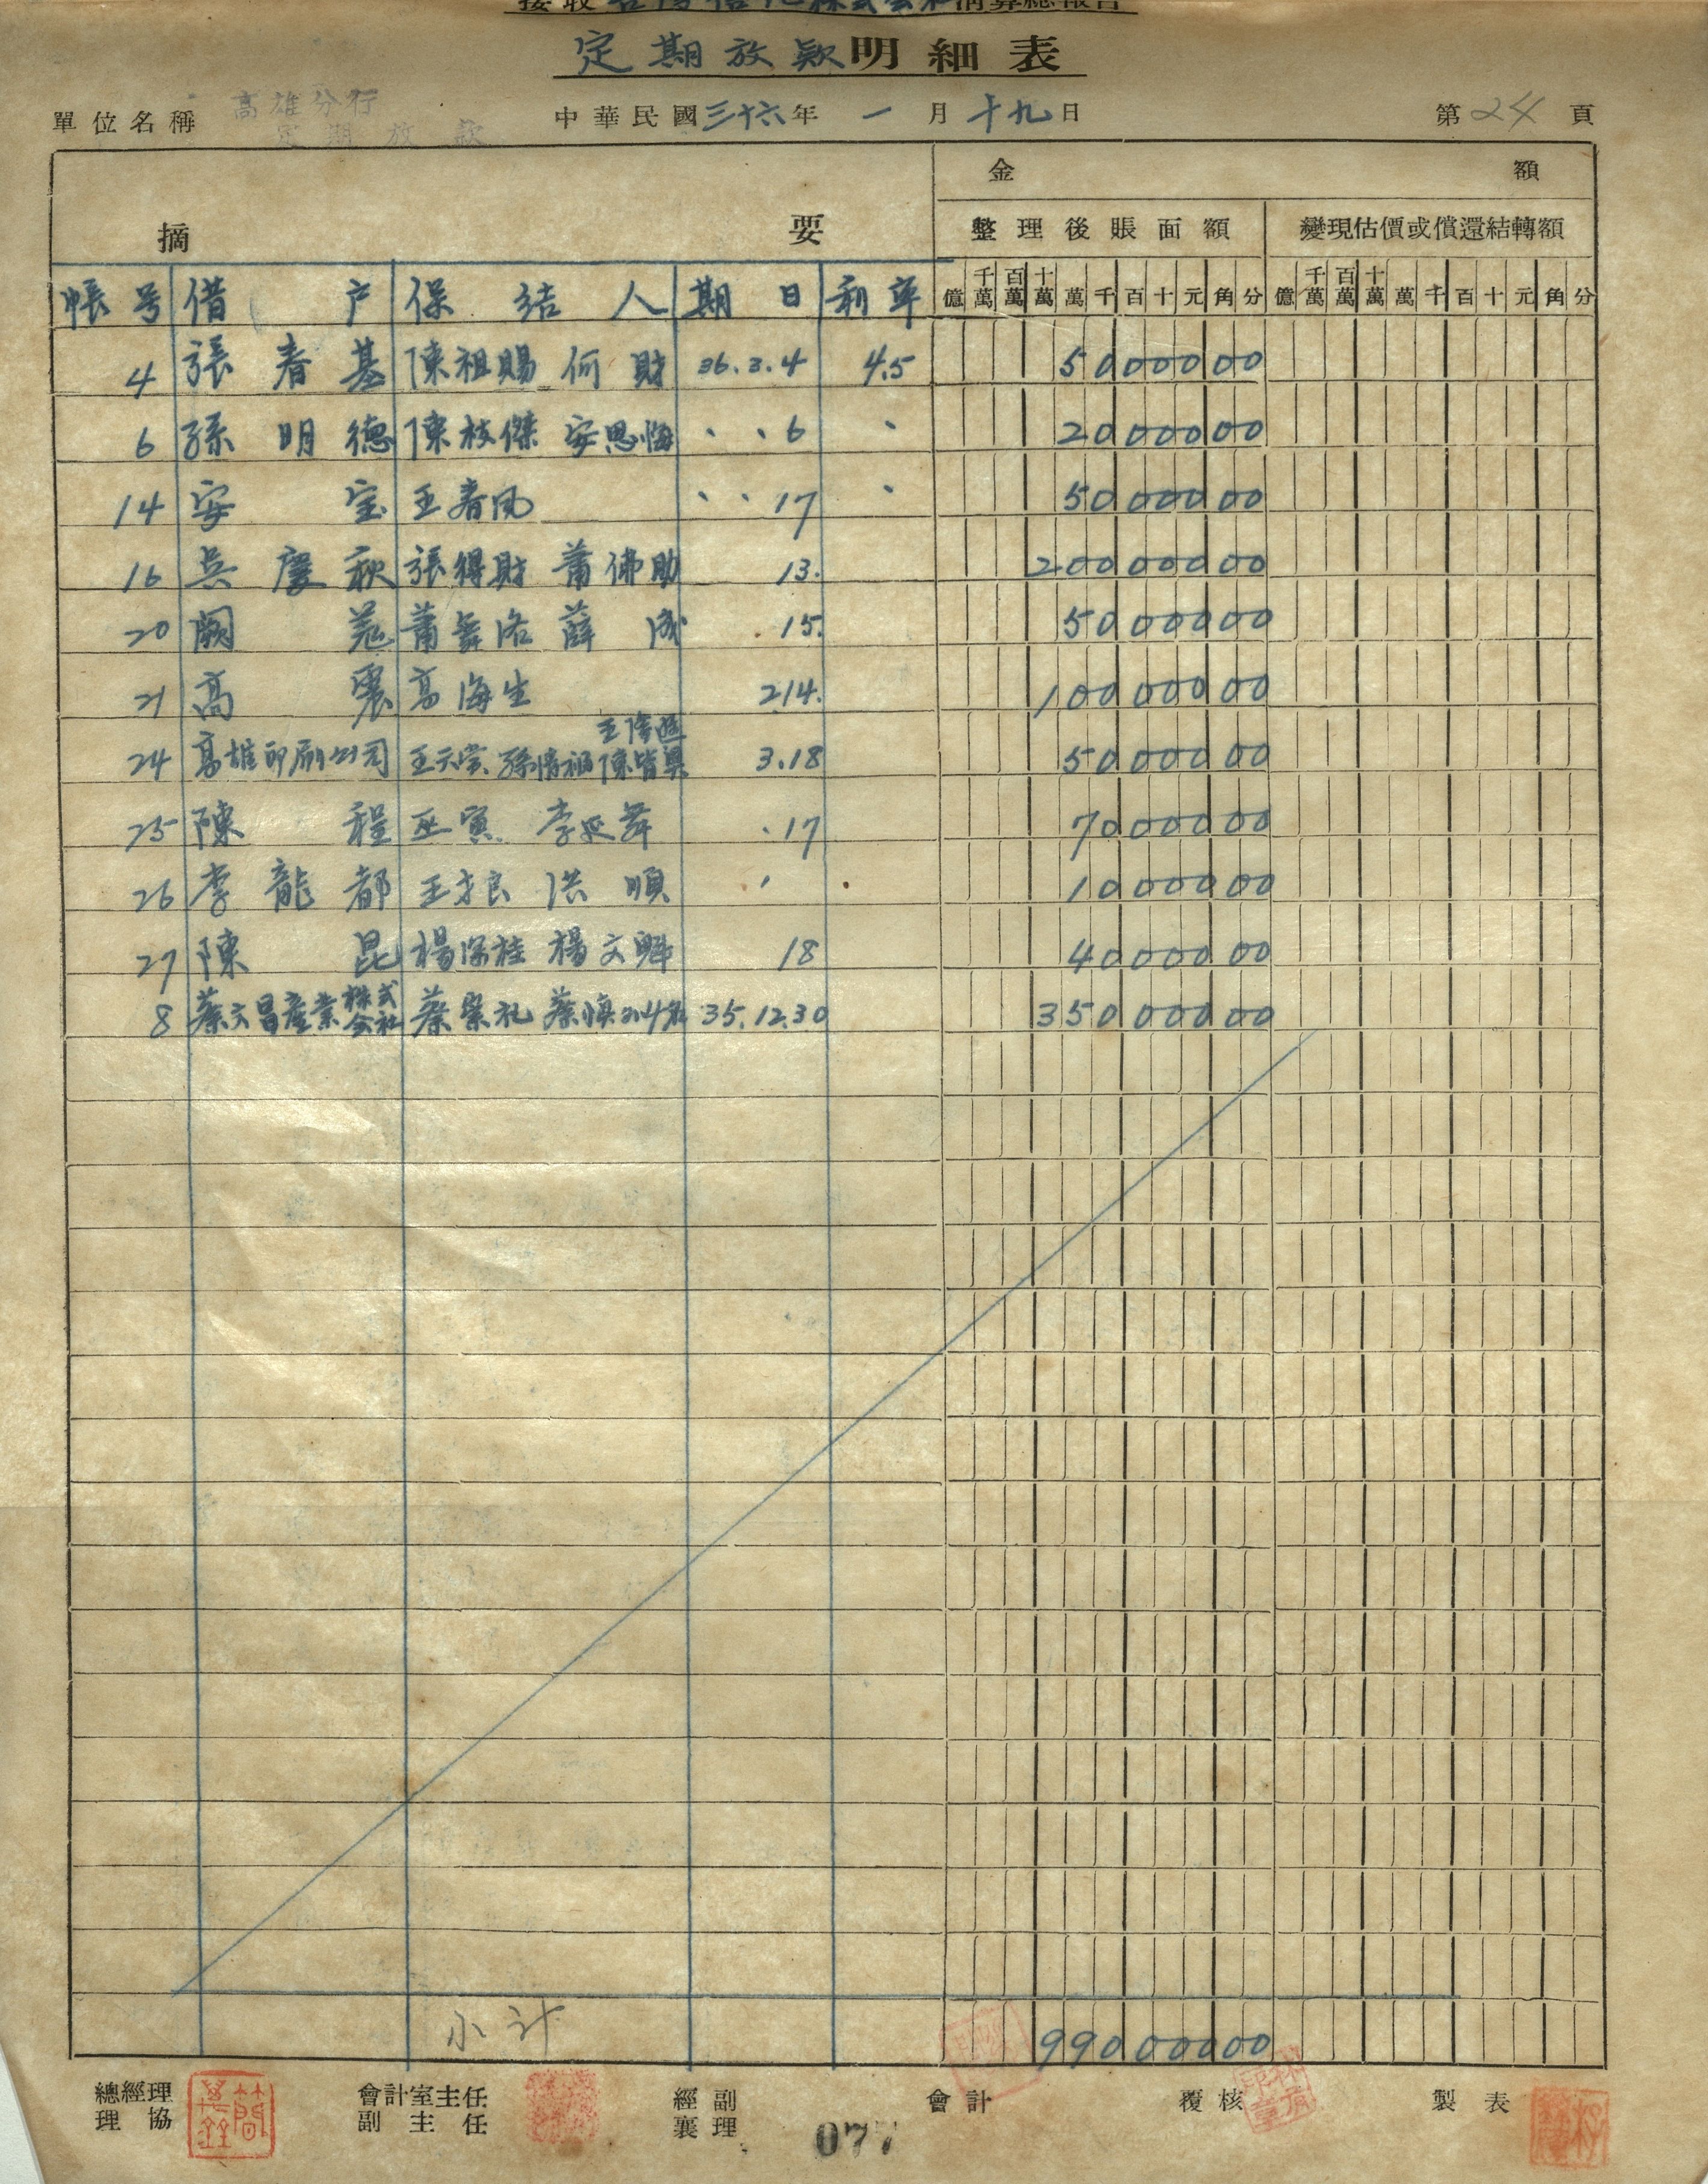 接收台湾信託株式会社清算總報告
定期放款明細表
單位名稱 高雄分行 定期放款 中華民國三十六年一月十九日 第24頁
摘要 金額
整理後賬面額 變現估價或償還結轉額
帳号 借户 保結人 期日 利率 億 千萬 百萬 十萬 萬 千 百 十 元 角 分 億 千萬 百萬 十萬 萬 千 百 十 元 角 分
4 張春基 陳祖賜 何財 36.3.4 4.5 5000000
6 孫明德 陳枝傑 安思悔 、、6 、 2000000
14 安宝 王春风 、、17 、 5000000
16 吳慶秋 張得財 蕭佛助 13. 20000000
20 闕羗 蕭舞洛 薛成 .15. 5000000
21 高震 高海生 214. 10000000
24 高雄印刷公司 王天賞 孫清祖 陳皆興 3.18 5000000
25 陳程 巫寅 李延舞 .17 7000000
26 李龍都 王才良 洪順 、 1000000
27 陳昆 楊深桂 楊文魁 18 4000000
8 蔡文昌產業株式会社 蔡崇礼 35.12.30 35000000
小計 99000000
總經理 會計室主任 經副 會計 覆核 製表
理協 副主任 襄理
077